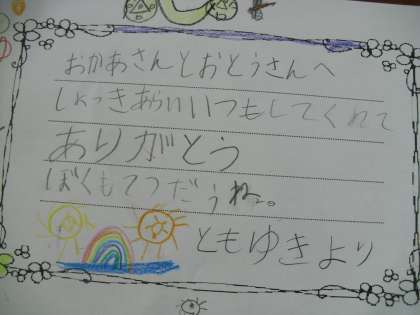 おかあさんとおとうさんへ
しょっきあらいいつもしてくれて
ありがとう
ぼくもてつだうね。
ともゆきより